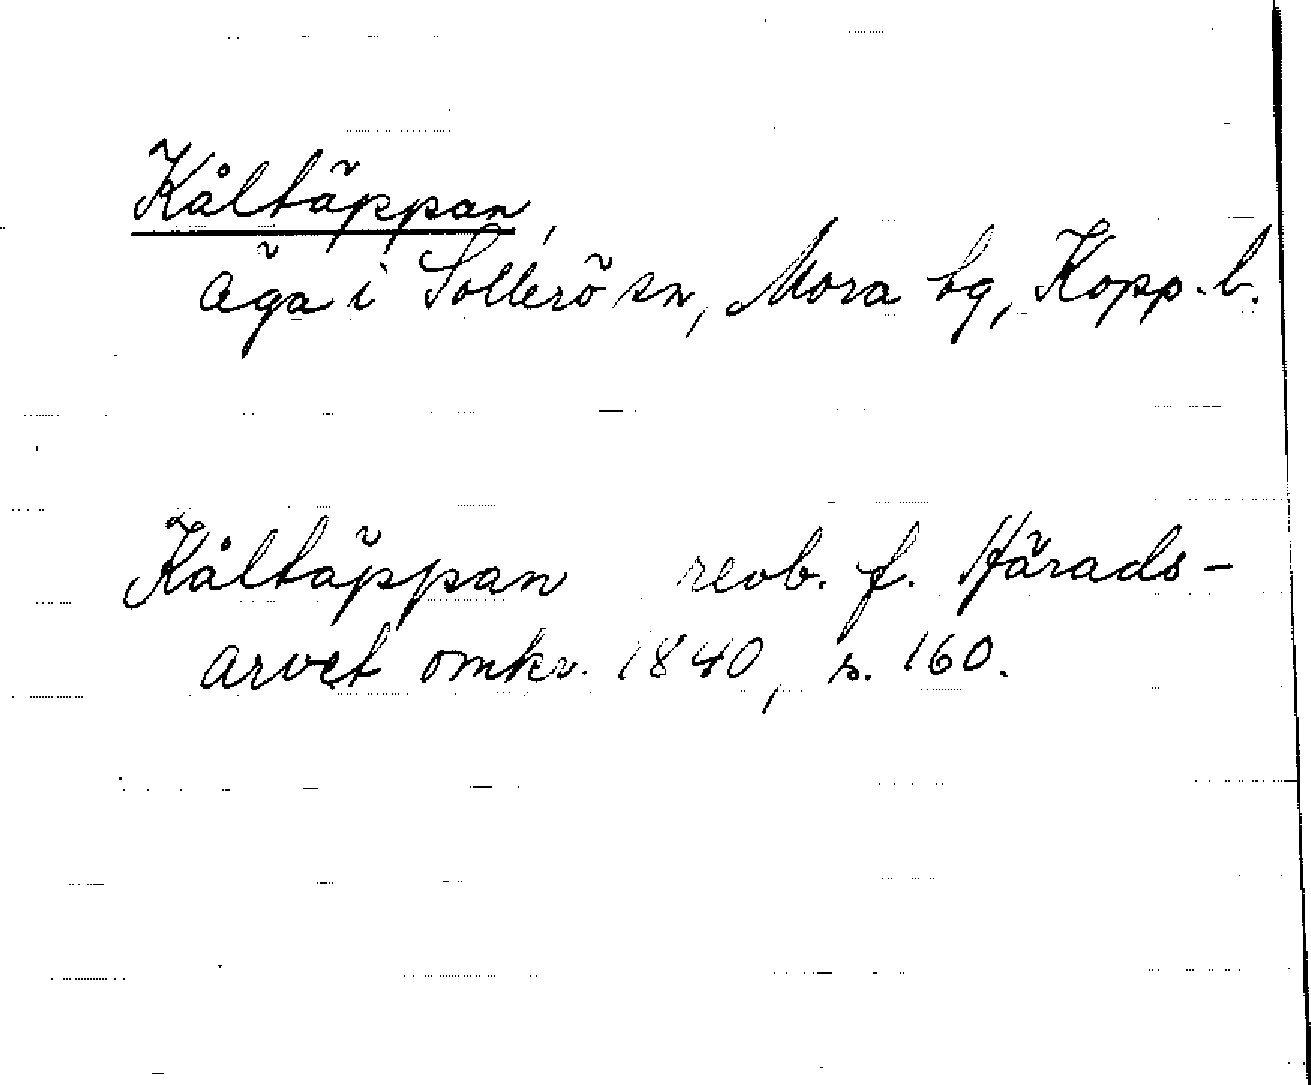 Kåltäppan,
äga i Sollerö sn, Mora tg, Kopp. l.
Kåltäppan revb. f. Härads-
arvet omkr. 1840, s. 160.